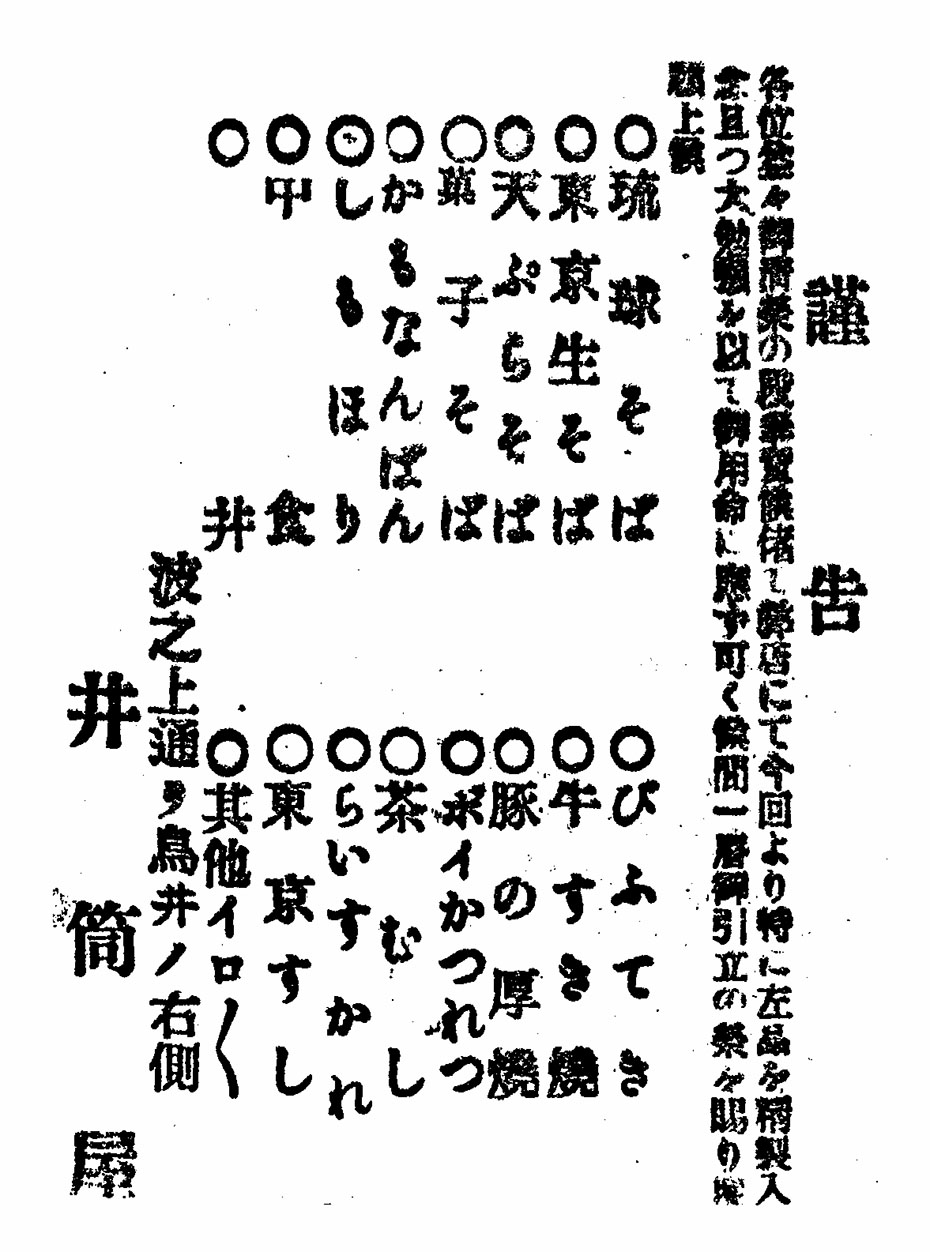 謹告
各位益々御清榮の段奉賀候陳して弊店にて今回より特に左品を精製入
念且つ大勉強を以て御用命に應ず可く候間一層御引立の榮を賜り度
願上候
○琉球そば
○東京生そば
○天ぷらそば
○菓子そば
○かもなんばん
○しもほり
○中食
○丼
○びふてき
○牛すき燒
○豚の厚燒
○ポイかつれつ
○茶むし
○らいすかれ
○東京すし
○其他イロ〱
波之上通リ鳥井ノ右側
井筒屋